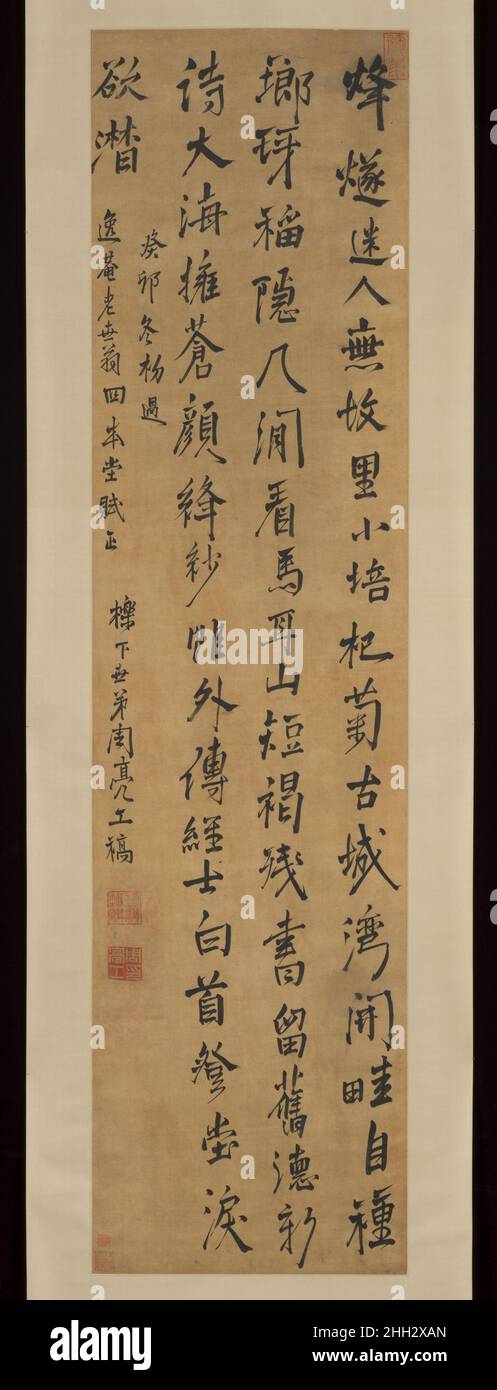 烽燧迷人無故里小培杞菊古城灣開畦自種
瑯琊稻隱几閒看馬耳山短褐殘書留舊德新
詩大海擁蒼顏絳紗帷外傳經士白首登堂淚
欲潸
癸卯冬杪過
逸菴老世翁四本堂賦正
櫟下世弟周亮工稿
alamy
Image ID: 2HH2XAN
www.alamy.com